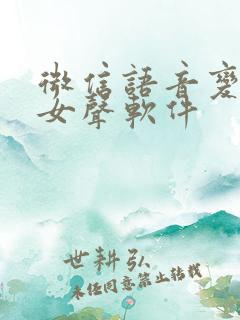 微信語音變
女聲軟件
世耕弘
未经同意禁止转载